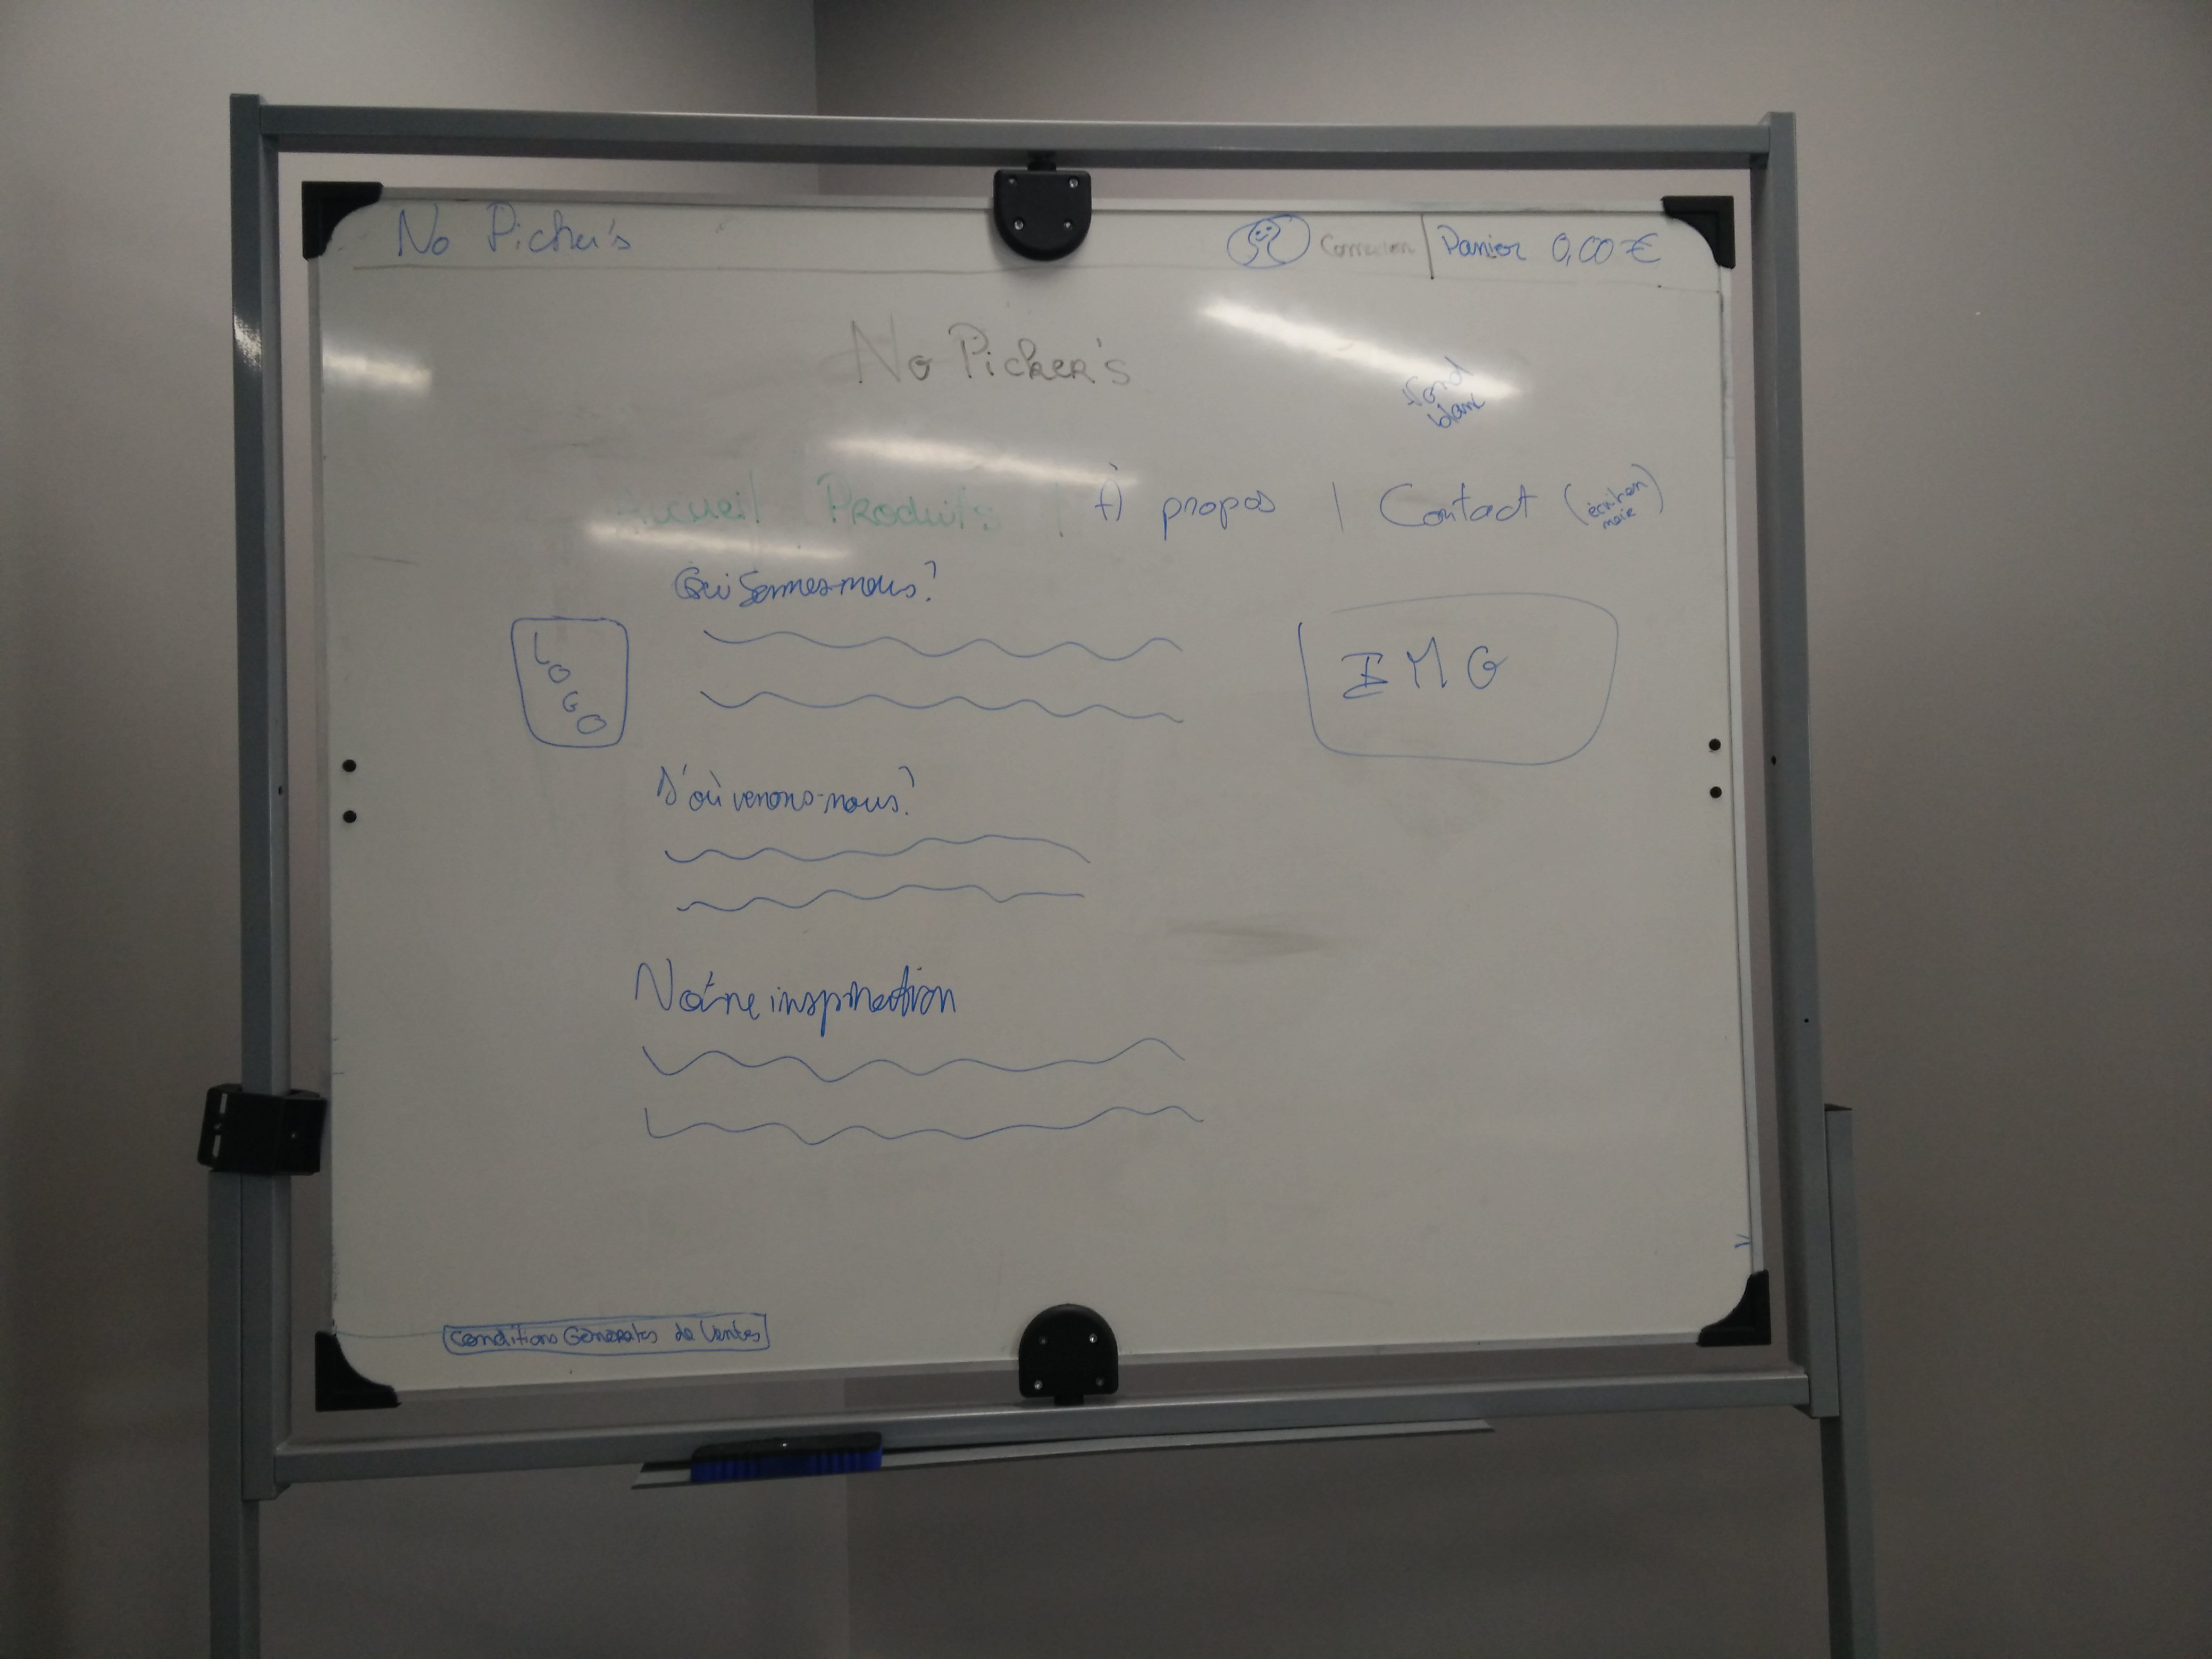 No Picker's
Connexion | Panier 0,00 €
No Picker's
fond
blanc
Accueil Produits | À propos | Contact (écriture
noire)
Qui sommes-nous?
LOGO
IMG
D'où venons-nous?
Notre inspiration
Conditions Générales de Ventes